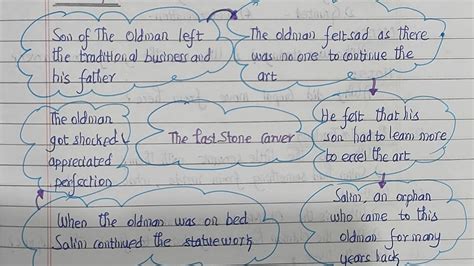 Son of The oldman left
the traditional business and
his father
The oldman felt sad as there
was no one to continue the
art
He fest that his
son had to learn more
to excel the art
Salim, an orphan
who came to this
oldman for many
years back
When the oldman was on bed
Salim continued the statuework
The oldman
got shocked &
appreciated
perfection
The fast Stone carver